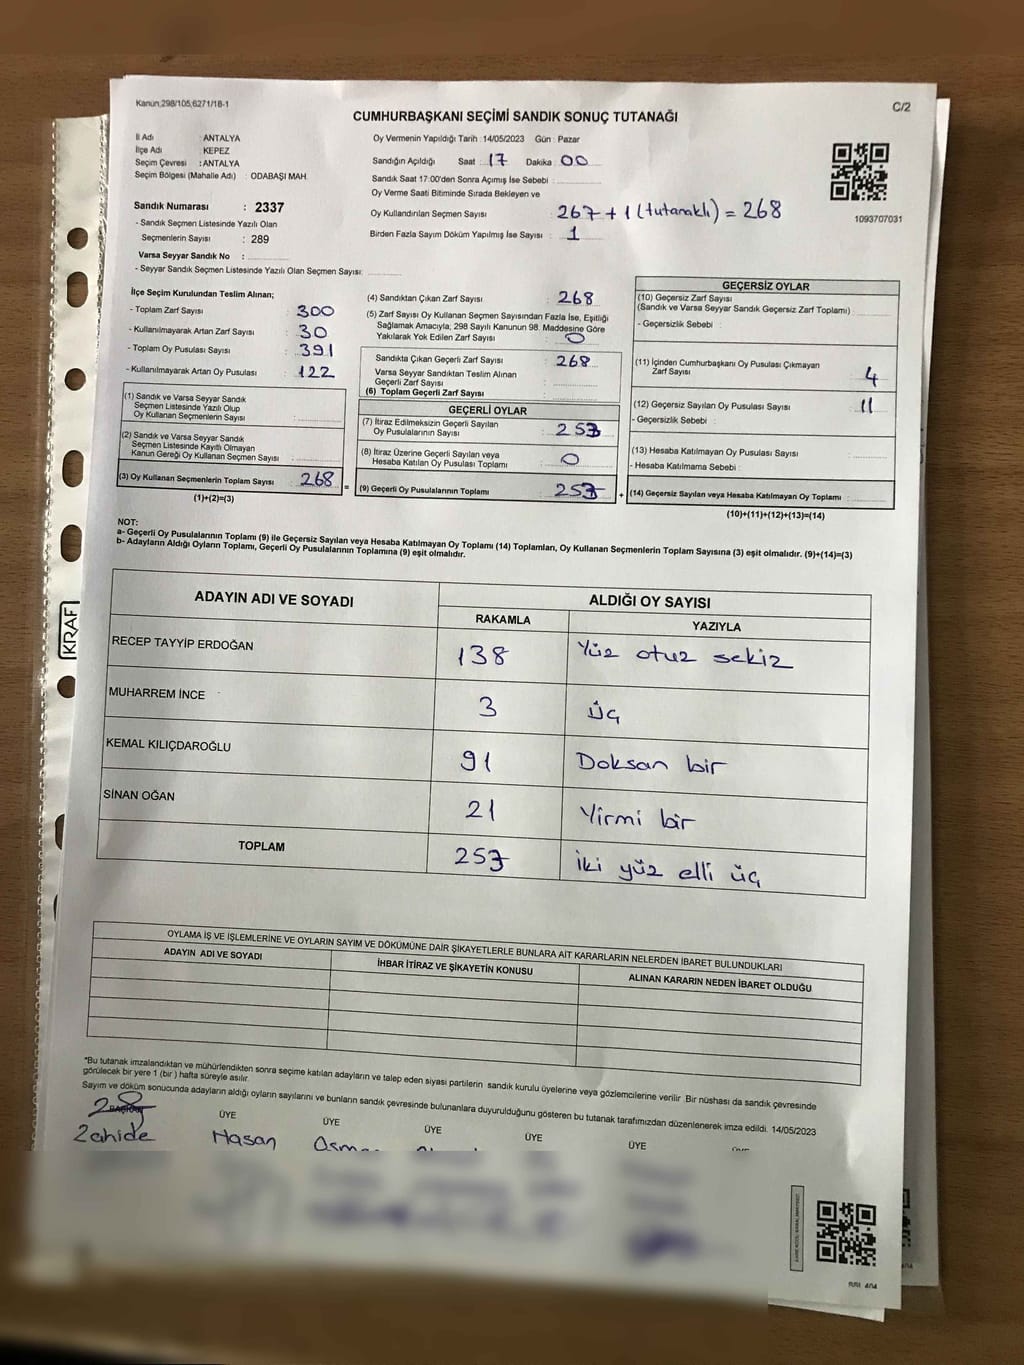 Kanun,298/105,6271/18-1
C/2
CUMHURBAŞKANI SEÇİMİ SANDIK SONUÇ TUTANAĞI
İl Adı : ANTALYA
İlçe Adı : KEPEZ
Seçim Çevresi : ANTALYA
Seçim Bölgesi (Mahalle Adı) : ODABAŞI MAH.
Sandık Numarası : 2337
- Sandık Seçmen Listesinde Yazılı Olan
Seçmenlerin Sayısı : 289
Varsa Seyyar Sandık No :
- Seyyar Sandık Seçmen Listesinde Yazılı Olan Seçmen Sayısı:
Oy Vermenin Yapıldığı Tarih : 14/05/2023 Gün : Pazar
Sandığın Açıldığı Saat : 17 Dakika : 00
Sandık Saat 17:00'den Sonra Açımış İse Sebebi :
Oy Verme Saati Bitiminde Sırada Bekleyen ve
Oy Kullandırılan Seçmen Sayısı : 267 + 1 (tutanaklı) = 268
Birden Fazla Sayım Döküm Yapılmış İse Sayısı : 1
1093707031
İlçe Seçim Kurulundan Teslim Alınan;
- Toplam Zarf Sayısı : 300
- Kullanılmayarak Artan Zarf Sayısı : 30
- Toplam Oy Pusulası Sayısı : 391
- Kullanılmayarak Artan Oy Pusulası : 122
(1) Sandık ve Varsa Seyyar Sandık
Seçmen Listesinde Yazılı Olup
Oy Kullanan Seçmenlerin Sayısı :
(2) Sandık ve Varsa Seyyar Sandık
Seçmen Listesinde Kayıtlı Olmayan
Kanun Gereği Oy Kullanan Seçmen Sayısı :
(3) Oy Kullanan Seçmenlerin Toplam Sayısı : 268
(1)+(2)=(3)
=
(4) Sandıktan Çıkan Zarf Sayısı : 268
(5) Zarf Sayısı Oy Kullanan Seçmen Sayısından Fazla İse, Eşitliği
Sağlamak Amacıyla; 298 Sayılı Kanunun 98. Maddesine Göre
Yakılarak Yok Edilen Zarf Sayısı : 0
Sandıkta Çıkan Geçerli Zarf Sayısı : 268
Varsa Seyyar Sandıktan Teslim Alınan
Geçerli Zarf Sayısı :
(6) Toplam Geçerli Zarf Sayısı :
GEÇERLİ OYLAR
(7) İtiraz Edilmeksizin Geçerli Sayılan
Oy Pusulalarının Sayısı : 253
(8) İtiraz Üzerine Geçerli Sayılan veya
Hesaba Katılan Oy Pusulası Toplamı : 0
(9) Geçerli Oy Pusulalarının Toplamı : 253
+
GEÇERSİZ OYLAR
(10) Geçersiz Zarf Sayısı
(Sandık ve Varsa Seyyar Sandık Geçersiz Zarf Toplamı) :
- Geçersizlik Sebebi :
(11) İçinden Cumhurbaşkanı Oy Pusulası Çıkmayan
Zarf Sayısı : 4
(12) Geçersiz Sayılan Oy Pusulası Sayısı : 11
- Geçersizlik Sebebi :
(13) Hesaba Katılmayan Oy Pusulası Sayısı :
- Hesaba Katılmama Sebebi :
(14) Geçersiz Sayılan veya Hesaba Katılmayan Oy Toplamı :
(10)+(11)+(12)+(13)=(14)
NOT:
a- Geçerli Oy Pusulalarının Toplamı (9) ile Geçersiz Sayılan veya Hesaba Katılmayan Oy Toplamı (14) Toplamları, Oy Kullanan Seçmenlerin Toplam Sayısına (3) eşit olmalıdır. (9)+(14)=(3)
b- Adayların Aldığı Oyların Toplamı, Geçerli Oy Pusulalarının Toplamına (9) eşit olmalıdır.
KRAF
ADAYIN ADI VE SOYADI ALDIĞI OY SAYISI
RAKAMLA YAZIYLA
RECEP TAYYİP ERDOĞAN 138 Yüz otuz sekiz
MUHARREM İNCE 3 üç
KEMAL KILIÇDAROĞLU 91 Doksan bir
SİNAN OĞAN 21 Yirmi bir
TOPLAM 253 iki yüz elli üç
OYLAMA İŞ VE İŞLEMLERİNE VE OYLARIN SAYIM VE DÖKÜMÜNE DAİR ŞİKAYETLERLE BUNLARA AİT KARARLARIN NELERDEN İBARET BULUNDUKLARI
ADAYIN ADI VE SOYADI İHBAR İTİRAZ VE ŞİKAYETİN KONUSU ALINAN KARARIN NEDEN İBARET OLDUĞU
*Bu tutanak imzalandıktan ve mühürlendikten sonra seçime katılan adayların ve talep eden siyasi partilerin sandık kurulu üyelerine veya gözlemcilerine verilir. Bir nüshası da sandık çevresinde
görülecek bir yere 1 (bir) hafta süreyle asılır.
Sayım ve döküm sonucunda adayların aldığı oyların sayılarını ve bunların sandık çevresinde bulunanlara duyurulduğunu gösteren bu tutanak tarafımızdan düzenlenerek imza edildi. 14/05/2023
BAŞKAN ÜYE ÜYE ÜYE ÜYE ÜYE
Zahide Hasan